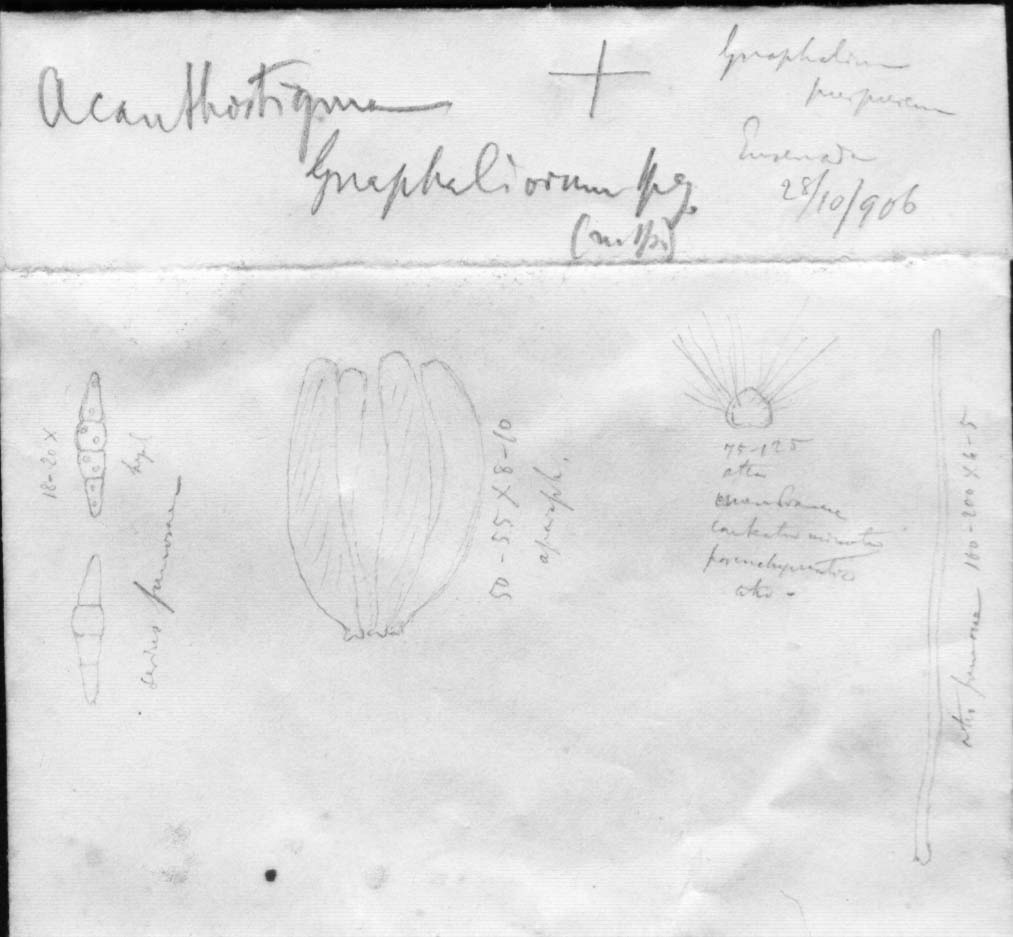 Acanthostigma
Gnaphaliorum Speg.
(n. sp.)
Gnaphalium
purpureum
Ensenada
28/10/906
18-20 X
hyal
serius fumosae
50-55 X 8-10
aparaph.
75-125
atra
membranac
contextu minute
parenchymatico
atro-
atro fumosae 100-200 X 4-5